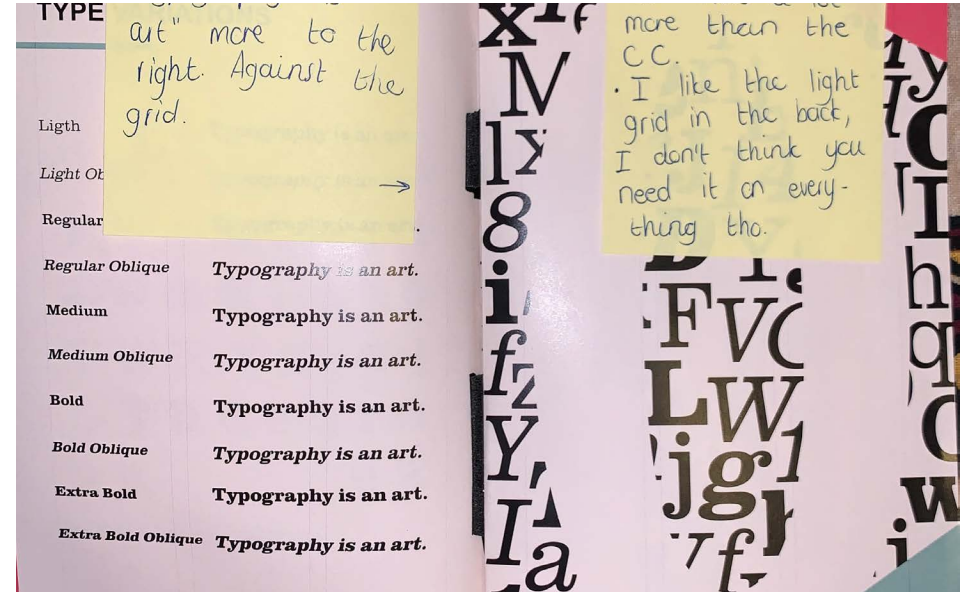 TYPE
art" more to the
right. Against the
grid.
Ligth
Light Ob
Regular
Regular Oblique Typography is an art.
Medium Typography is an art.
Medium Oblique Typography is an art.
Bold Typography is an art.
Bold Oblique Typography is an art.
Extra Bold Typography is an art.
Extra Bold Oblique Typography is an art.
more than the
CC.
· I like the light
grid in the back,
I don't think you
need it on every-
thing tho.
x
M
8
i
fz
Y,
I
a
FV
LW
jg1
h
q
w
i